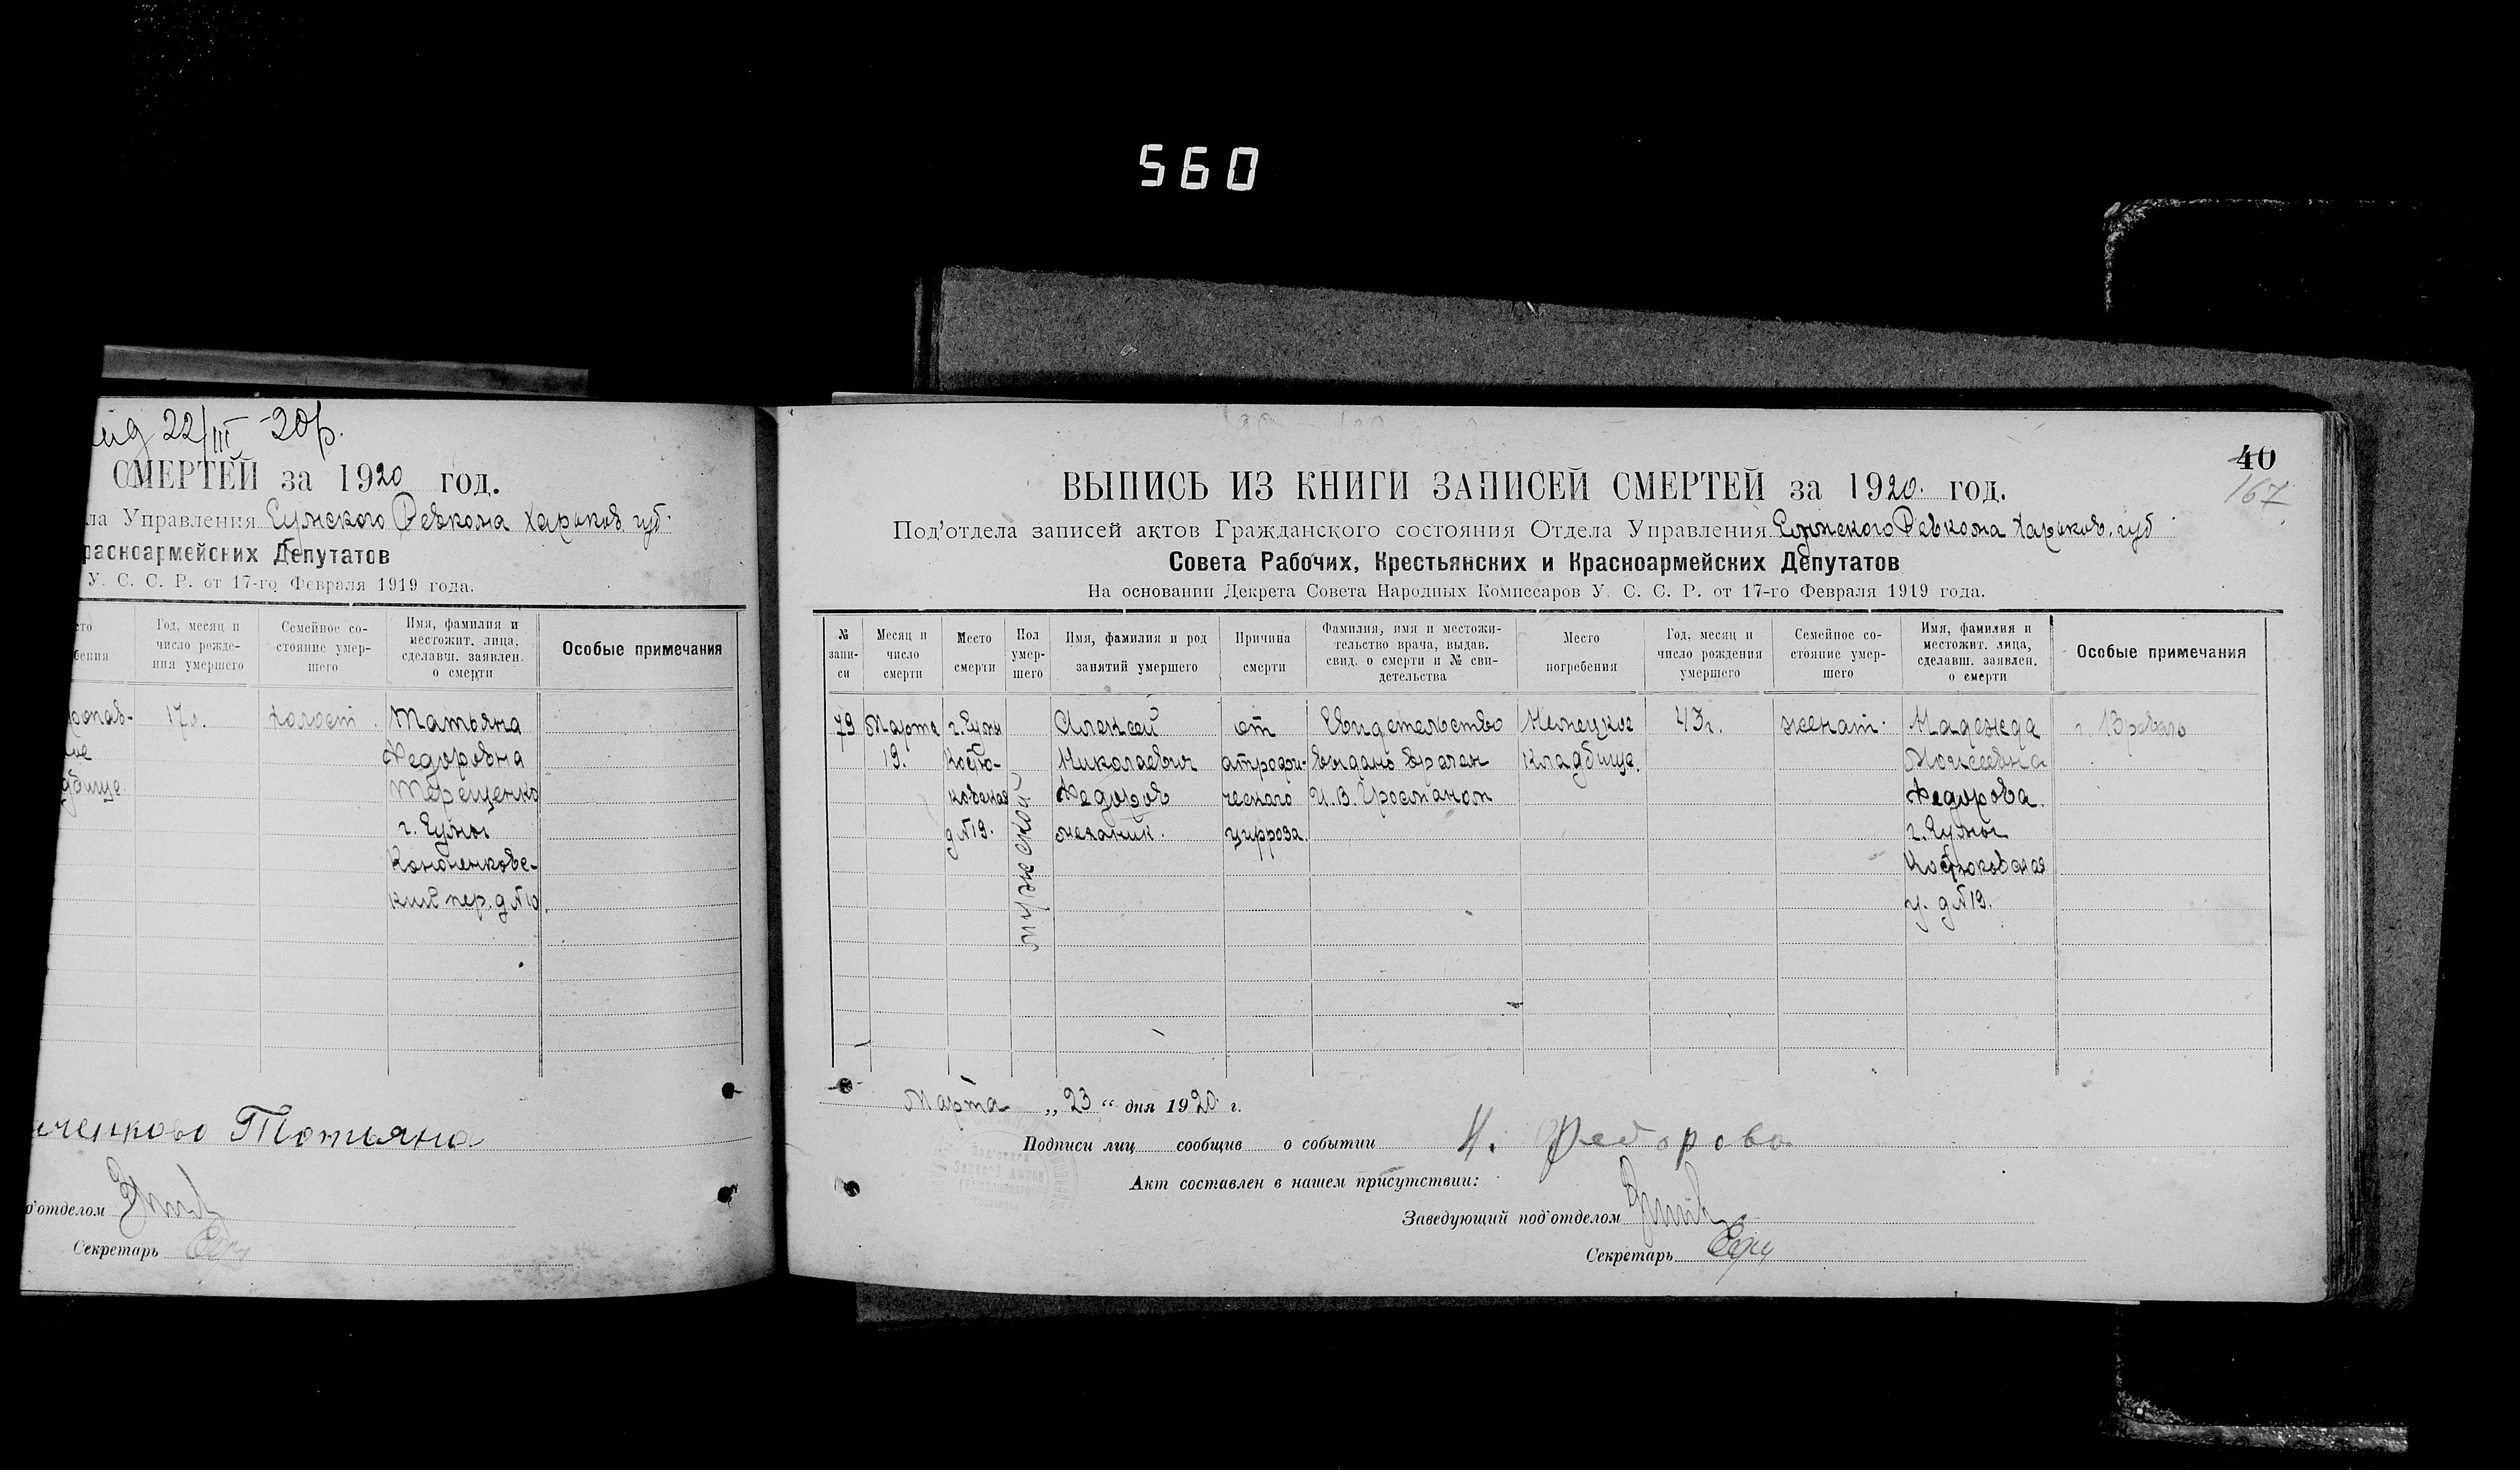 560
22/III -20р.
СМЕРТЕЙ за 1920 год.
ла Управления Сумского Ревкома Харьков. губ.
расноармейских Депутатов
У. С. С. Р. от 17-го Февраля 1919 года.
сто
бения
Год, месяц и
число рожде-
ния умершего
Семейное со-
стояние умер-
шего
Имя, фамилия и
местожит. лица,
сделавш. заявлен.
о смерти
Особые примечания
17л.
холост.
Татьяна
Федоровна
Терещенко
г. Сумы
Кононенковс-
кий пер. д №10.
дбище.
Татьяна
о'отделом
Секретарь
40
167
ВЫПИСЬ ИЗ КНИГИ ЗАПИСЕЙ СМЕРТЕЙ за 1920. год.
Под'отдела записей актов Гражданского состояния Отдела Управления Сумского Ревкома Харьков. губ
Совета Рабочих, Крестьянских и Красноармейских Депутатов
На основании Декрета Совета Народных Комиссаров У. С. С. Р. от 17-го Февраля 1919 года.
№
запи-
си
Месяц и
число
смерти
Место
смерти
Пол
умер-
шего
Имя, фамилия и род
занятий умершего
Причина
смерти
Фамилия, имя и местожи-
тельство врача, выдав.
свид. о смерти и № сви-
детельства
Место
погребения
Год, месяц и
число рождения
умершего
Семейное со-
стояние умер-
шего
Имя, фамилия и
местожит. лица,
сделавш. заявлен.
о смерти
Особые примечания
79
Марта
19.
г. Сумы
Костю-
ковская
д №19.
мужской
Алексей
Николаевич
Федоров
механик.
от
атрофи-
ческаго
цирроза.
Свидетельство
выдано врачем
И. В. Гросманом
Немецкое
Кладбище.
43г.
женат.
Надежда
Моисеевна
Федорова.
г. Сумы
Костюковская
у. д №19.
Марта „23“ дня 1920 г.
Подписи лиц сообщив о событии Н. Федорова
Акт составлен в нашем присутствии:
Заведующий под'отделом
Секретарь